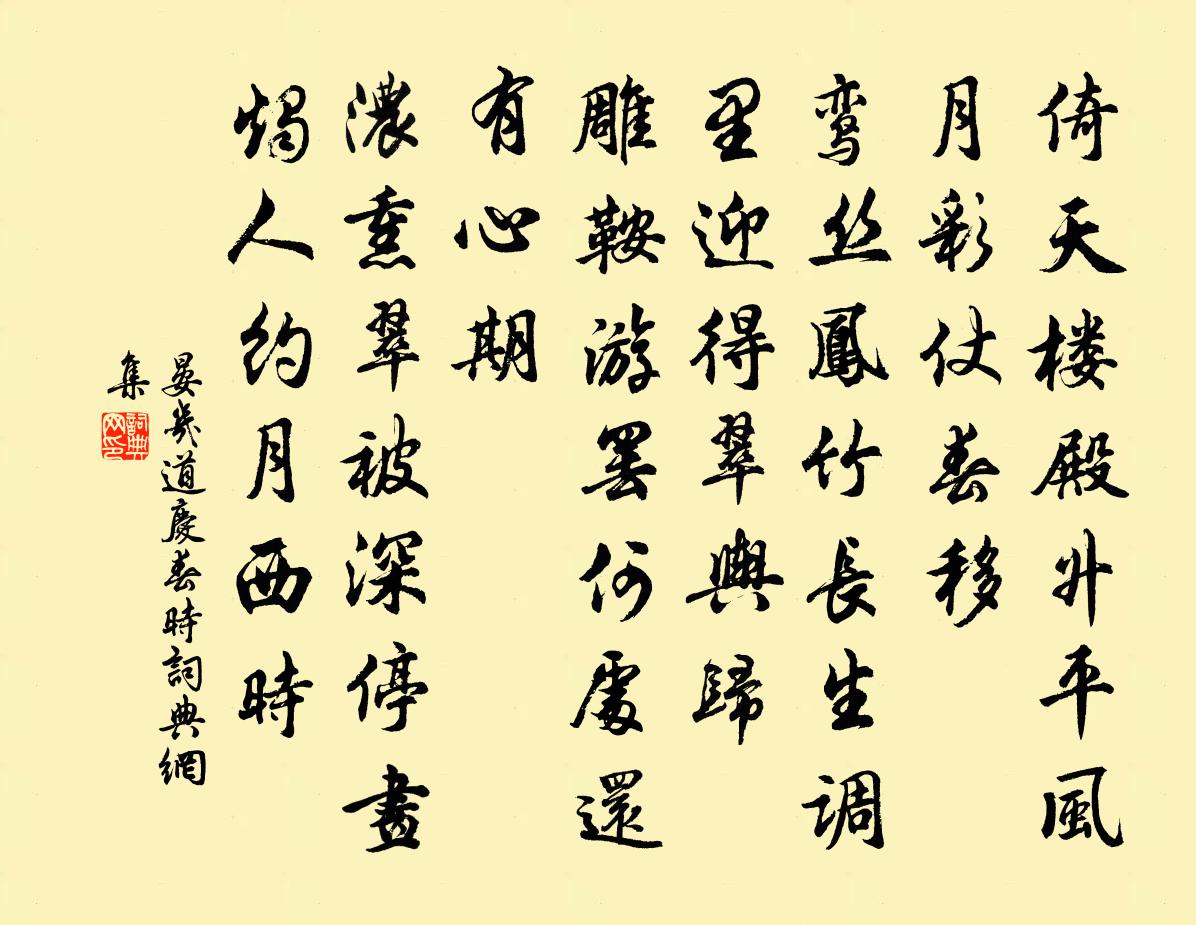 倚天楼殿升平風
月彩仗春移
鸾丝鳳竹長生调
里迎得翠輿歸
雕鞍游罢何處還
有心期
濃熏翠被深停畫
燭人约月西時
晏幾道慶春時詞典網
集
詞典
网印